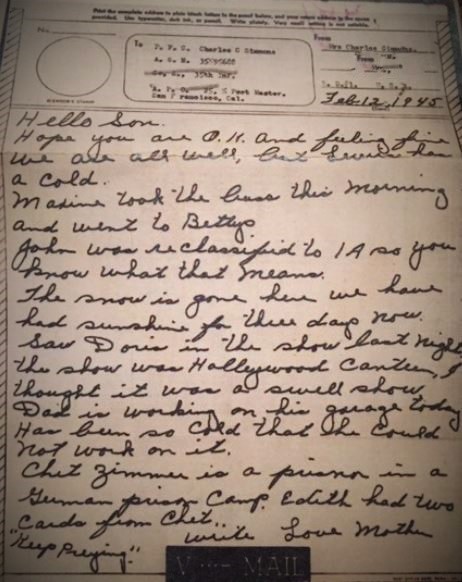 Print the complete address in plain block letters in the panel below, and your return address in the space
provided. Use typewriter, dark ink, or pencil. Write plainly. Very small writing is not suitable.
No.
To P. F. C. Charles C Simmons
A. S. N.
35th Inf.
A. P. O. % Post Master.
San Francisco, Cal.
From
Mrs Charles Simmons.
Feb. 12, 1945
Hello Son.
Hope you are O.K. and feeling fine
We are all well, but has
a cold.
Maxine took the buss this Morning
and went to Bettys
John was reclassified to 1A so you
Know what that means.
The snow is gone here we have
had sunshine for three days now.
Saw Doris in the show last Night,
the show was Hollywood Canteen, I
thought it was a swell show
Dad is working on his garage today
Has been so Cold that he Could
not work on it.
Chet Zimmer is a prisnor in a
German prison Camp. Edith had two
Cards from Chet..
"Keep Preying." write Love Mother
V ···— MAIL